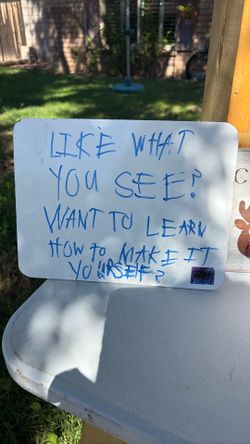 LIKE WHAT
YOU SEE?
WANT TO LEARN
HOW TO MAKE IT
YOURSELF?
C